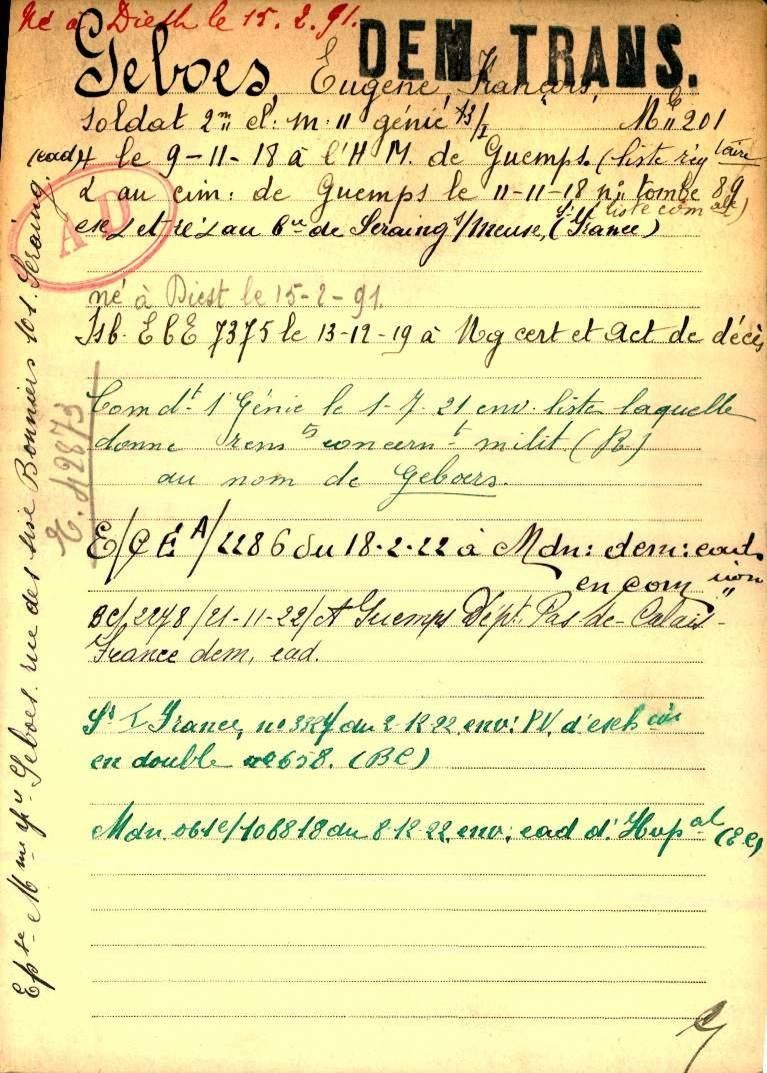 Né à Diest le 15.2.91.
DEM TRANS.
Geboes, Eugène François,
soldat 2me cl: m: II génie 13/I Mle 201
(cad) + le 9-11-18 à l'H M. de Guemps. (liste rég taire
I au cim: de Guemps le 11-11-18 n: tombe 89
liste com ale)
et au de Seraing s/Meuse, (France)
AD
né à Diest le 15-2-91.
Isb. E b E 7375 le 13-12-19 à Ng cert et act de décès
Comdt 1 Génie le 1-7-21 env. liste laquelle
donne rensts concernt milit (R)
au nom de Geboers.
E/CE A/2286 du 18-2-22 à Mdn: dem: cad
en com ion
BC/2278/21-11-22/A Guemps Dépt. Pas-de-Calais-
France dem, cad.
St I France, no 3324 du 2-12-22 env: PV. d'exh
en double 658. (BC)
Mdn. 061c/108818 du 8-12-22, env: cad d'Hop al (EC)
Epse Mme Geboes. rue des six Bonniers 101. Seraing.
R. 42873